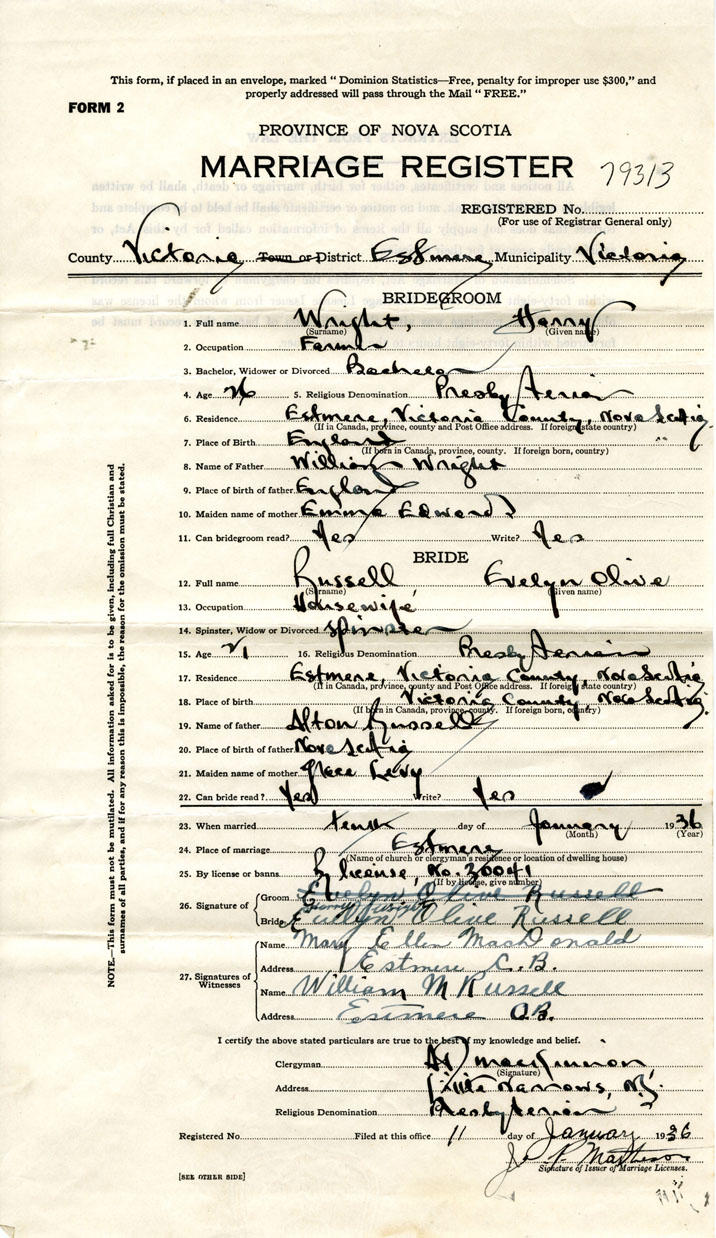 This form, if placed in an envelope, marked " Dominion Statistics—Free, penalty for improper use $300," and
properly addressed will pass through the Mail " FREE."
FORM 2
PROVINCE OF NOVA SCOTIA
MARRIAGE REGISTER 79313
REGISTERED No.
(For use of Registrar General only)
County Victoria Town or District Estmere Municipality Victoria
BRIDEGROOM
1. Full name Wright, Harry
(Surname) (Given name)
2. Occupation Farmer
3. Bachelor, Widower or Divorced Bachelor
4. Age 26 5. Religious Denomination Presbyterian
6. Residence Estmere, Victoria County, Nova Scotia
(If in Canada, province, county and Post Office address. If foreign state country)
7. Place of Birth England
(If born in Canada, province, county. If foreign born, country)
8. Name of Father William Wright
9. Place of birth of father England
10. Maiden name of mother Emma Edwards
11. Can bridegroom read? Yes Write? Yes
BRIDE
12. Full name Russell Evelyn Olive
(Surname) (Given name)
13. Occupation Housewife
14. Spinster, Widow or Divorced Spinster
15. Age 21 16. Religious Denomination Presbyterian
17. Residence Estmere, Victoria County, Nova Scotia
(If in Canada, province, county and Post Office address. If foreign state country)
18. Place of birth Victoria County, Nova Scotia
(If born in Canada, province, county. If foreign born, country)
19. Name of father Afton Russell
20. Place of birth of father Nova Scotia
21. Maiden name of mother Grace Levy
22. Can bride read? Yes Write? Yes
23. When married tenth day of January 1936
(Month) (Year)
24. Place of marriage Estmere
(Name of church or clergyman's residence or location of dwelling house)
25. By license or banns By license, No. 30041
(If by license, give number)
26. Signature of Groom Evelyn Olive Russell
Harry Wright
Bride Evelyn Olive Russell
27. Signatures of Witnesses
Name Mary Ellen MacDonald
Address Estmere C. B.
Name William M Russell
Address Estmere C.B.
I certify the above stated particulars are true to the best of my knowledge and belief.
Clergyman MacKinnon
(Signature)
Address Little Narrows, N.S.
Religious Denomination Presbyterian
Registered No. Filed at this office 11 day of January 1936
P. Matheson
Signature of Issuer of Marriage Licenses.
[SEE OTHER SIDE]
NOTE.—This form must not be mutilated. All information asked for is to be given, including full Christian and
surnames of all parties, and if for any reason this is impossible, the reason for the omission must be stated.